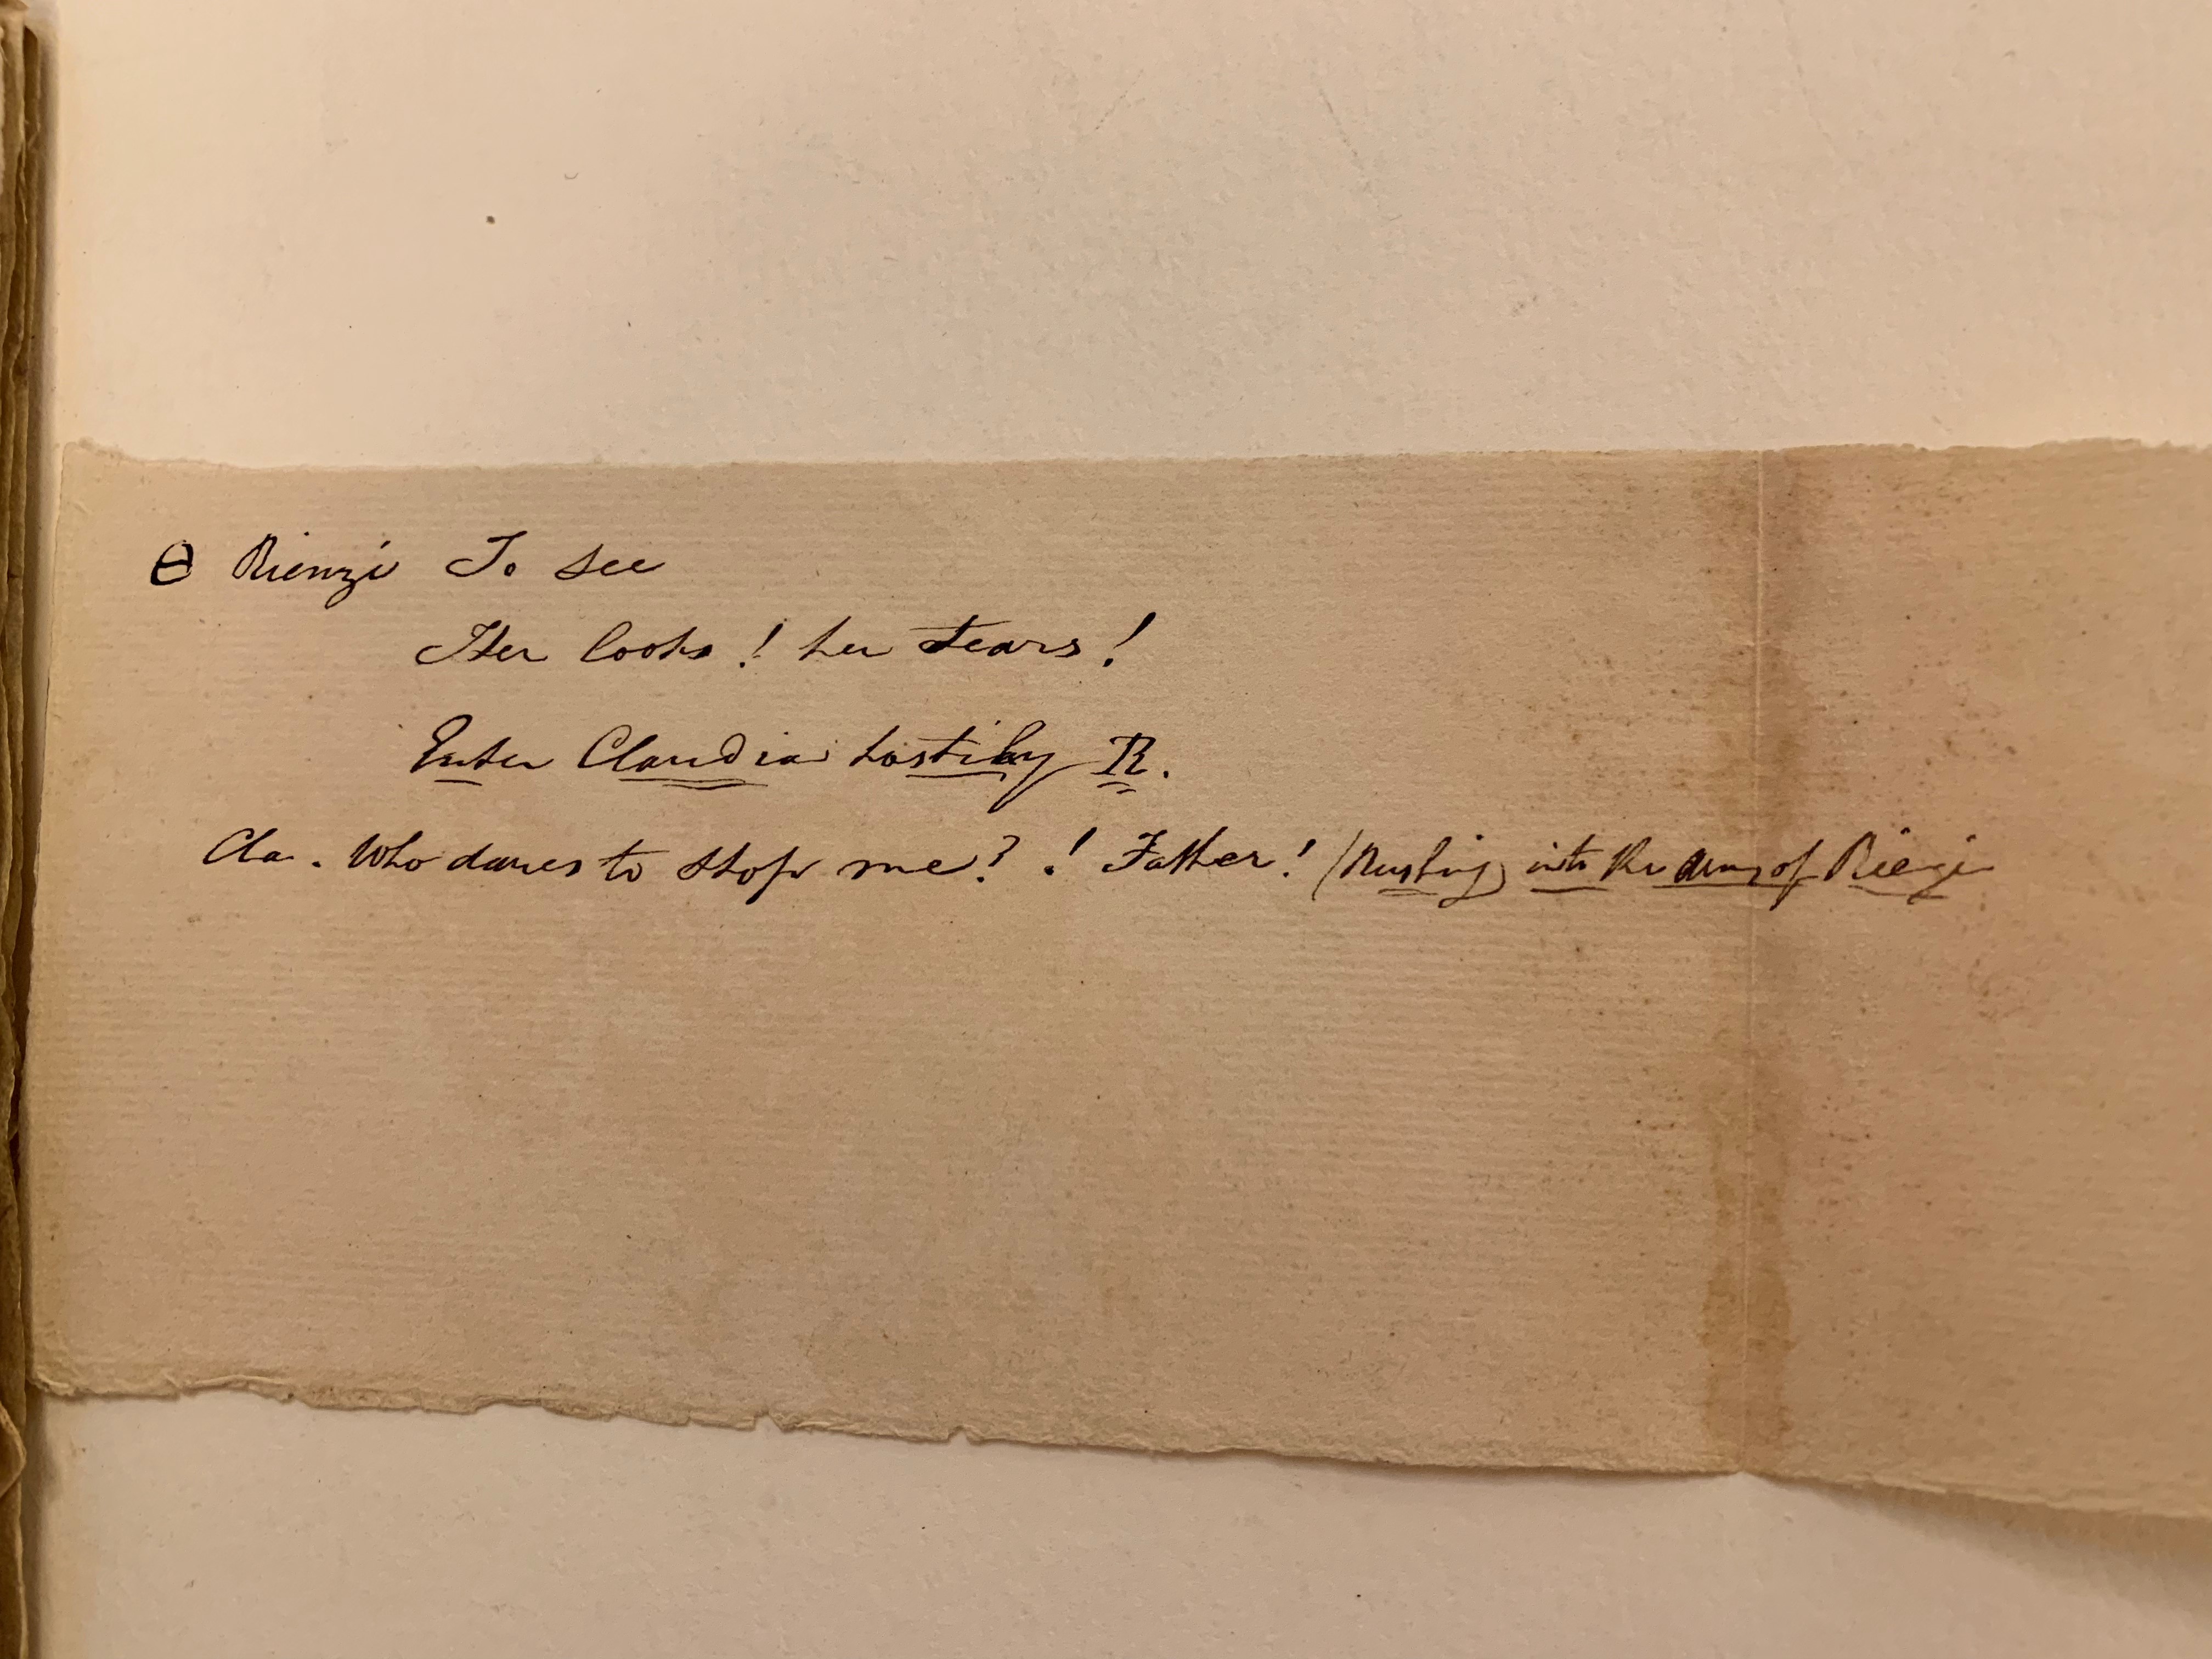 Ɵ Rienzi To see
Her looks! her tears!
Enter Claudia hastily R.
Cla. Who dares to stop me? ! Father! (Rushing into the arms of Rienzi